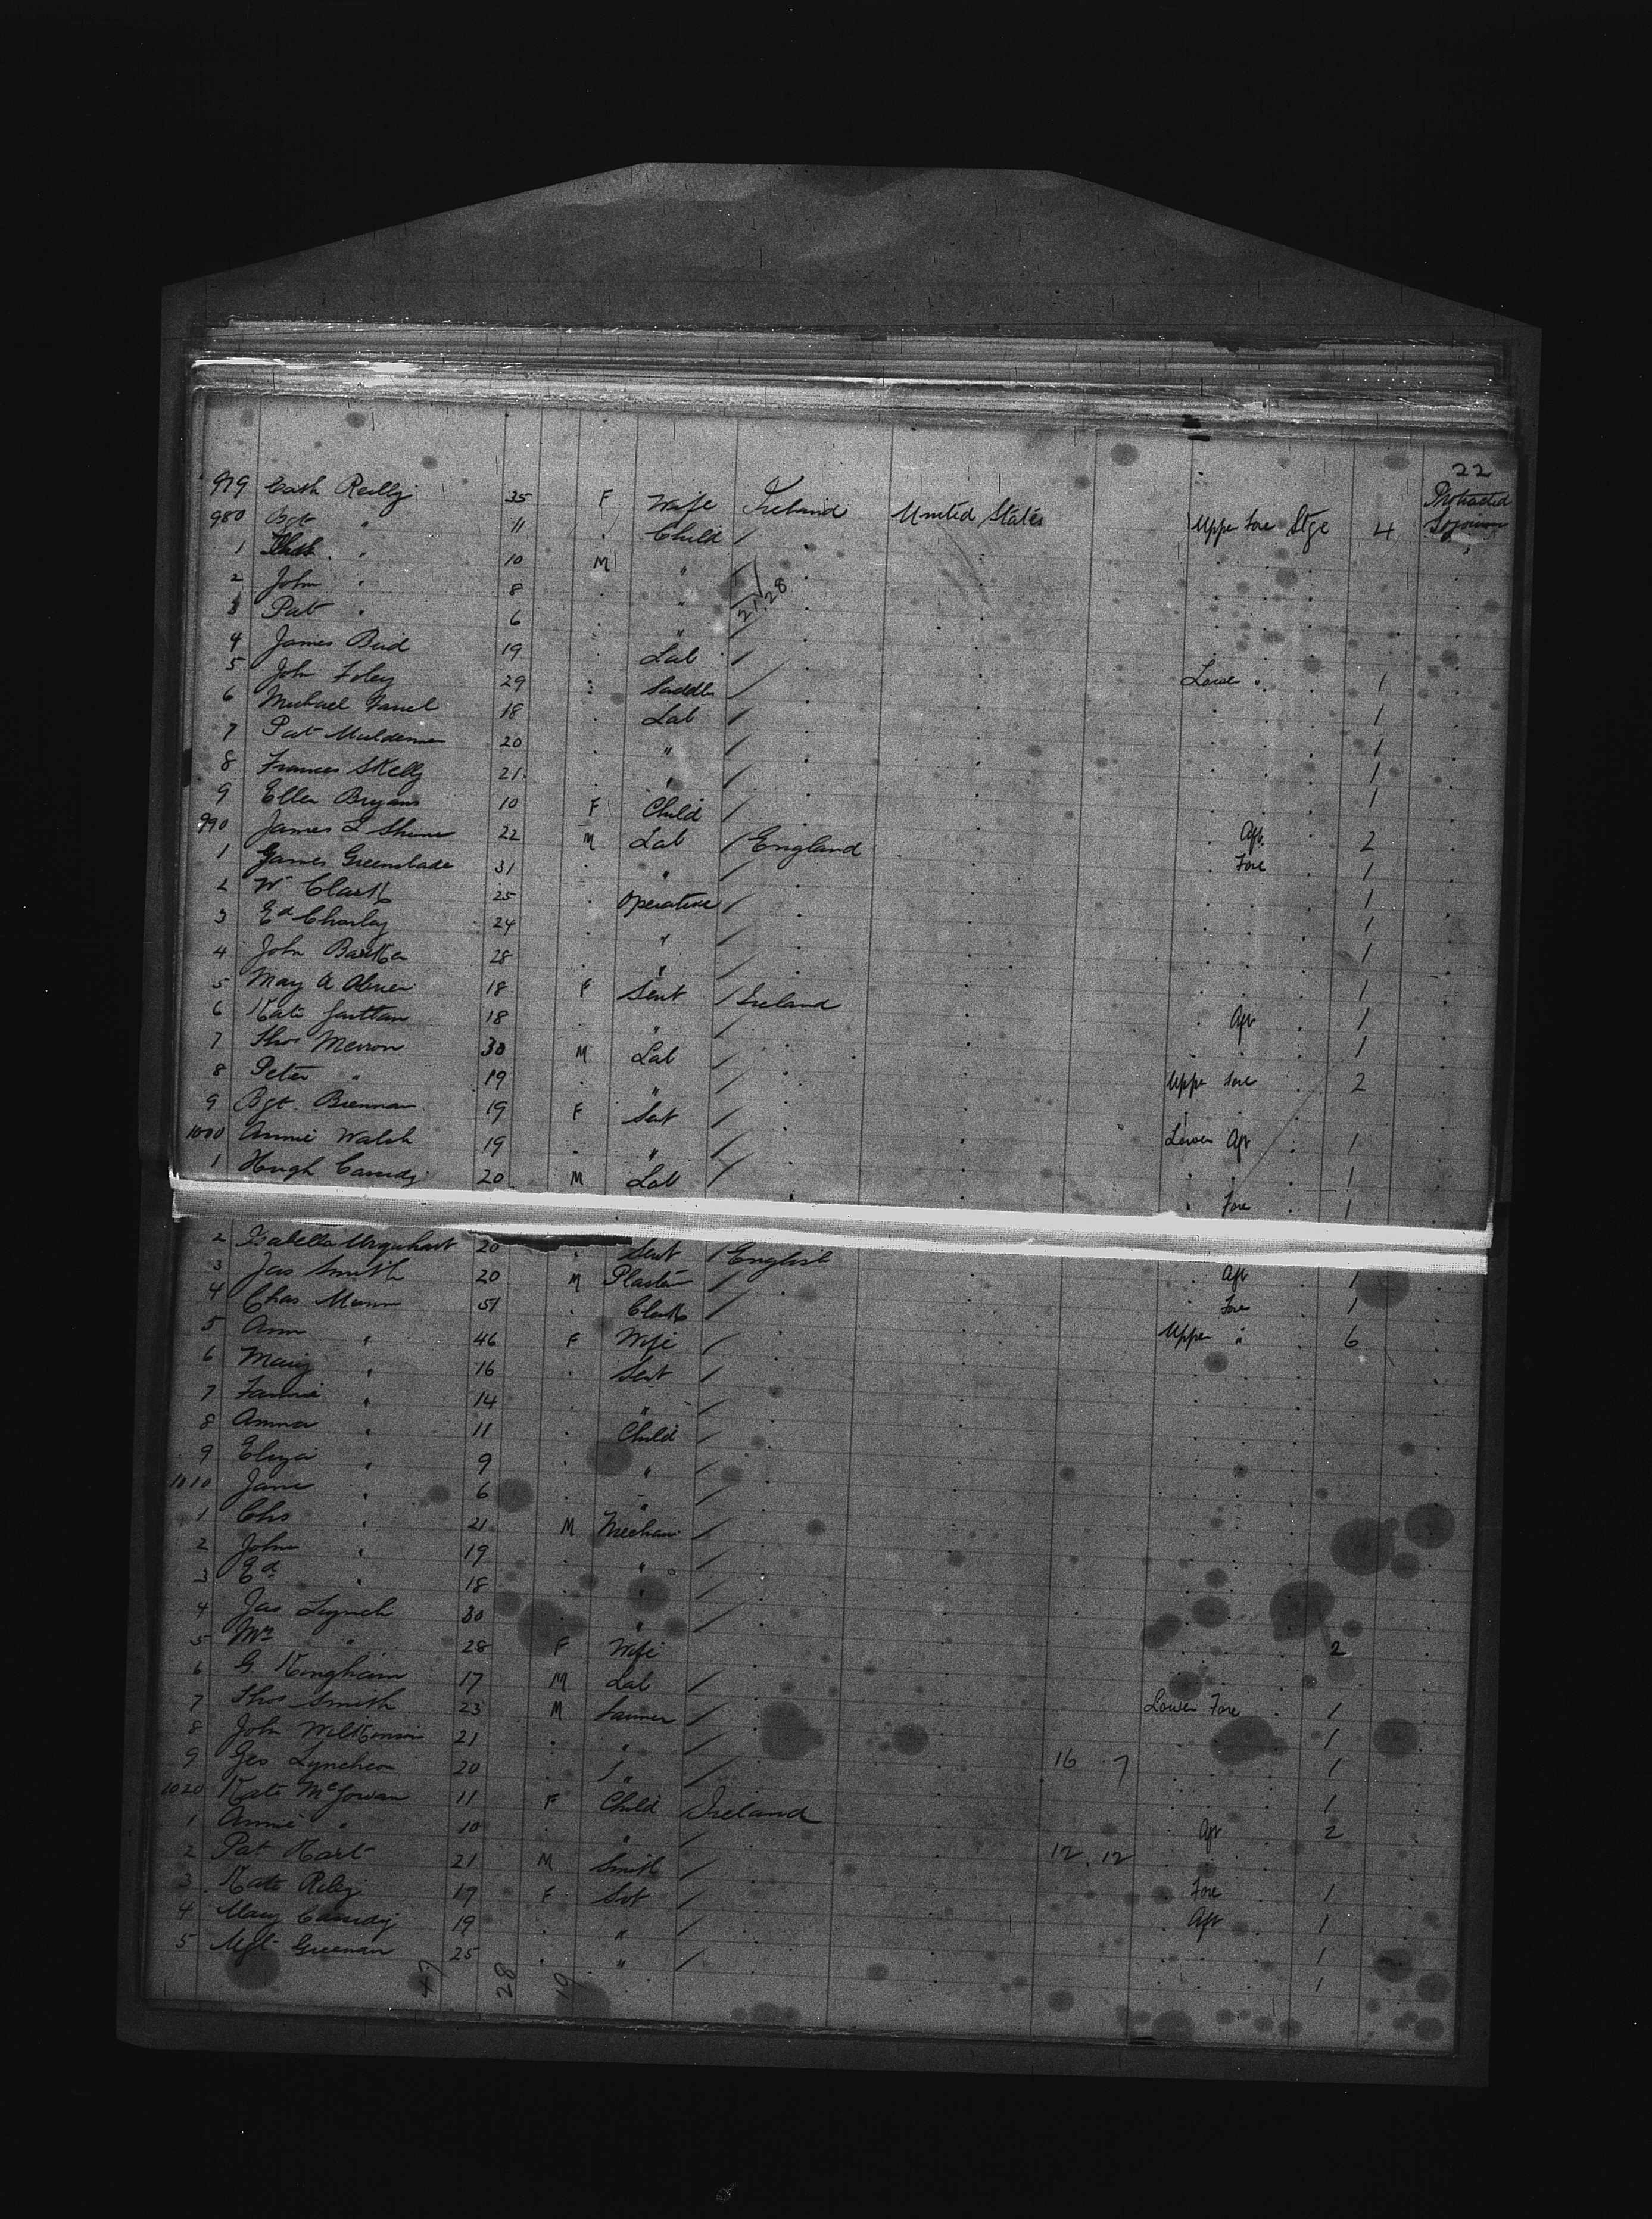 22
979 Cath Reilly 35 F Wife Ireland United States Upper Fore Stge 4 Protracted Sojourn
980 Bgt " 11 . Child / . .
1 " 10 M " / . .
2 John " 8 . " / . .
3 Pat " 6 . " / . .
21/28
4 James Bird 19 . Lab / . . Lower " 1
5 John Foley 29 . Saddler / . . 1
6 Michael Farrel 18 . Lab / . . 1
7 Pat Muldenn 20 . " / . . 1
8 Frances Skelly 21 . " / . . 1
9 Ellen Bryans 10 F Child / . . Aft 2
990 James L 22 M Lab / England . . Fore 1
1 James Greenslade 31 . " / . . 1
2 W Clark 25 . Operative / . . 1
3 Ed Charley 24 . " / . . 1
4 John Barker 28 . " / . . 1
5 May A 18 F Sevt / Ireland . . Aft 1
6 Kate 18 . " / . . 1
7 Thos Merron 30 M Lab / . . Upper Fore 2
8 Peter " 19 . " / . .
9 Bgt. Brennan 19 F Sevt / . . Lower Aft 1
1000 Annie Walsh 19 . " / . . 1
1 Hugh Cassidy 20 M Lab / . . Fore 1
2 Isabella Urquhart 20 . Sevt / English . . Aft 1
3 Jas Smith 20 M Plaster / . . Fore 1
4 Chas Munn 51 . Clerk / . . Upper " 6
5 Ann " 46 F Wife / . .
6 Mary " 16 . Sevt / . .
7 Fannie " 14 . " / . .
8 Anna " 11 . Child / . .
9 Eliza " 9 . " / . .
1010 Jane " 6 . " / . .
1 Chs " 21 M Mechan / . .
2 John " 19 . " / . .
3 Ed " 18 . " / . .
4 Jas Lynch 30 . " / . . 2
5 Mrs " 28 F Wife
6 G. Kingham 17 M Lab / . . Lower Fore 1
7 Thos Smith 23 M Farmer / . . 1
8 John Wilkinson 21 . " / . 16 . 7 1
9 Geo Lyncheon 20 . " / . . 1
1020 Kate McGowan 11 F Child / Ireland . . Aft 2
1 Annie " 10 . " / . 12 . 12
2 Pat Hart 21 M Smith / . . Fore 1
3 Kate Riley 19 F Svt / . . Aft 1
4 Mary Cassidy 19 . " / . . 1
5 Mgt Greenan 25 . " / . . 1
47 28 19